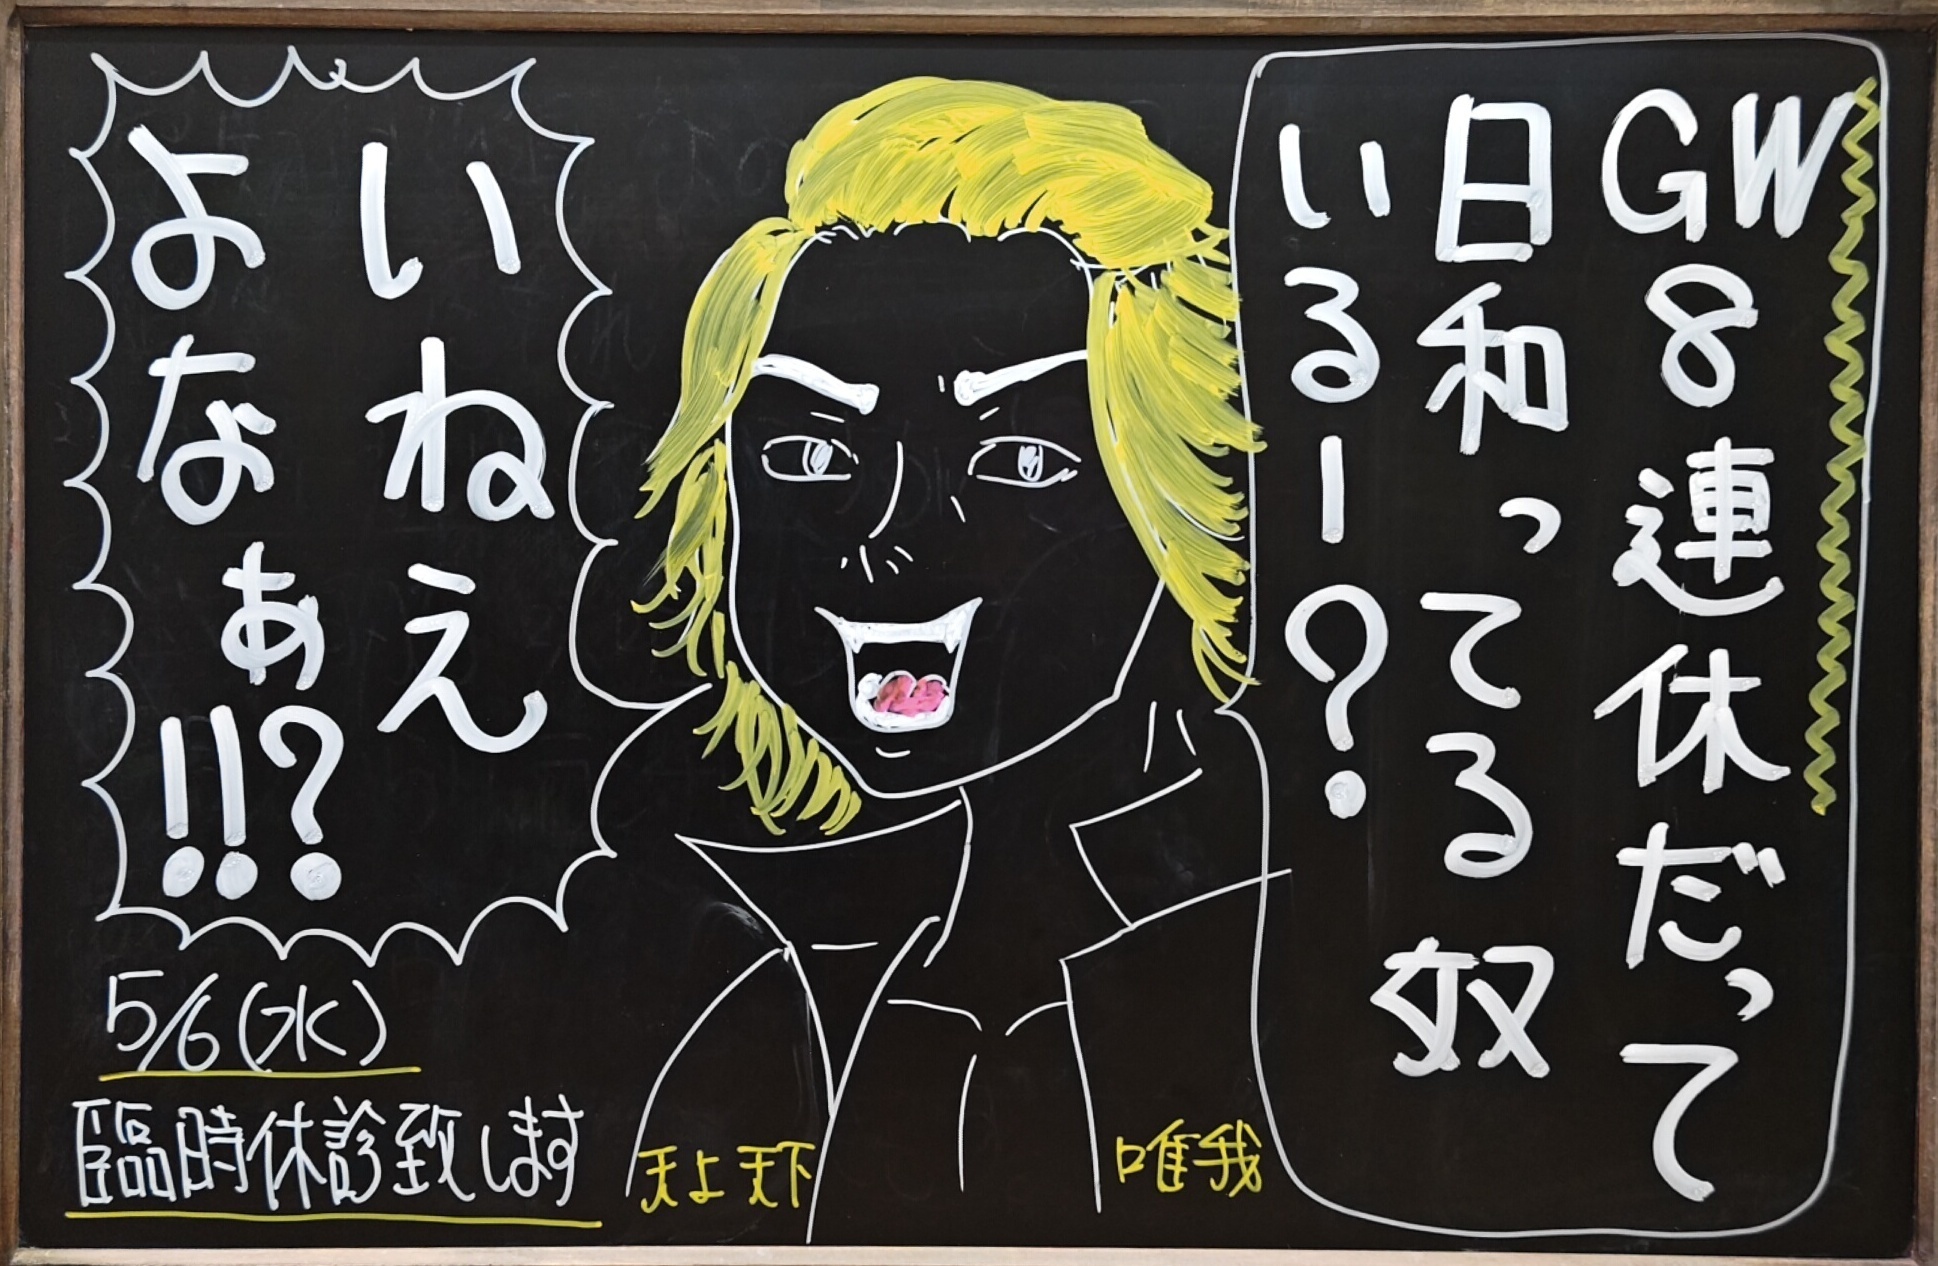 GW8連休だって
日和ってる奴
いるー?
いねえ
よなぁ?!!
5/6(水)
臨時休診致します
天上天下
唯我